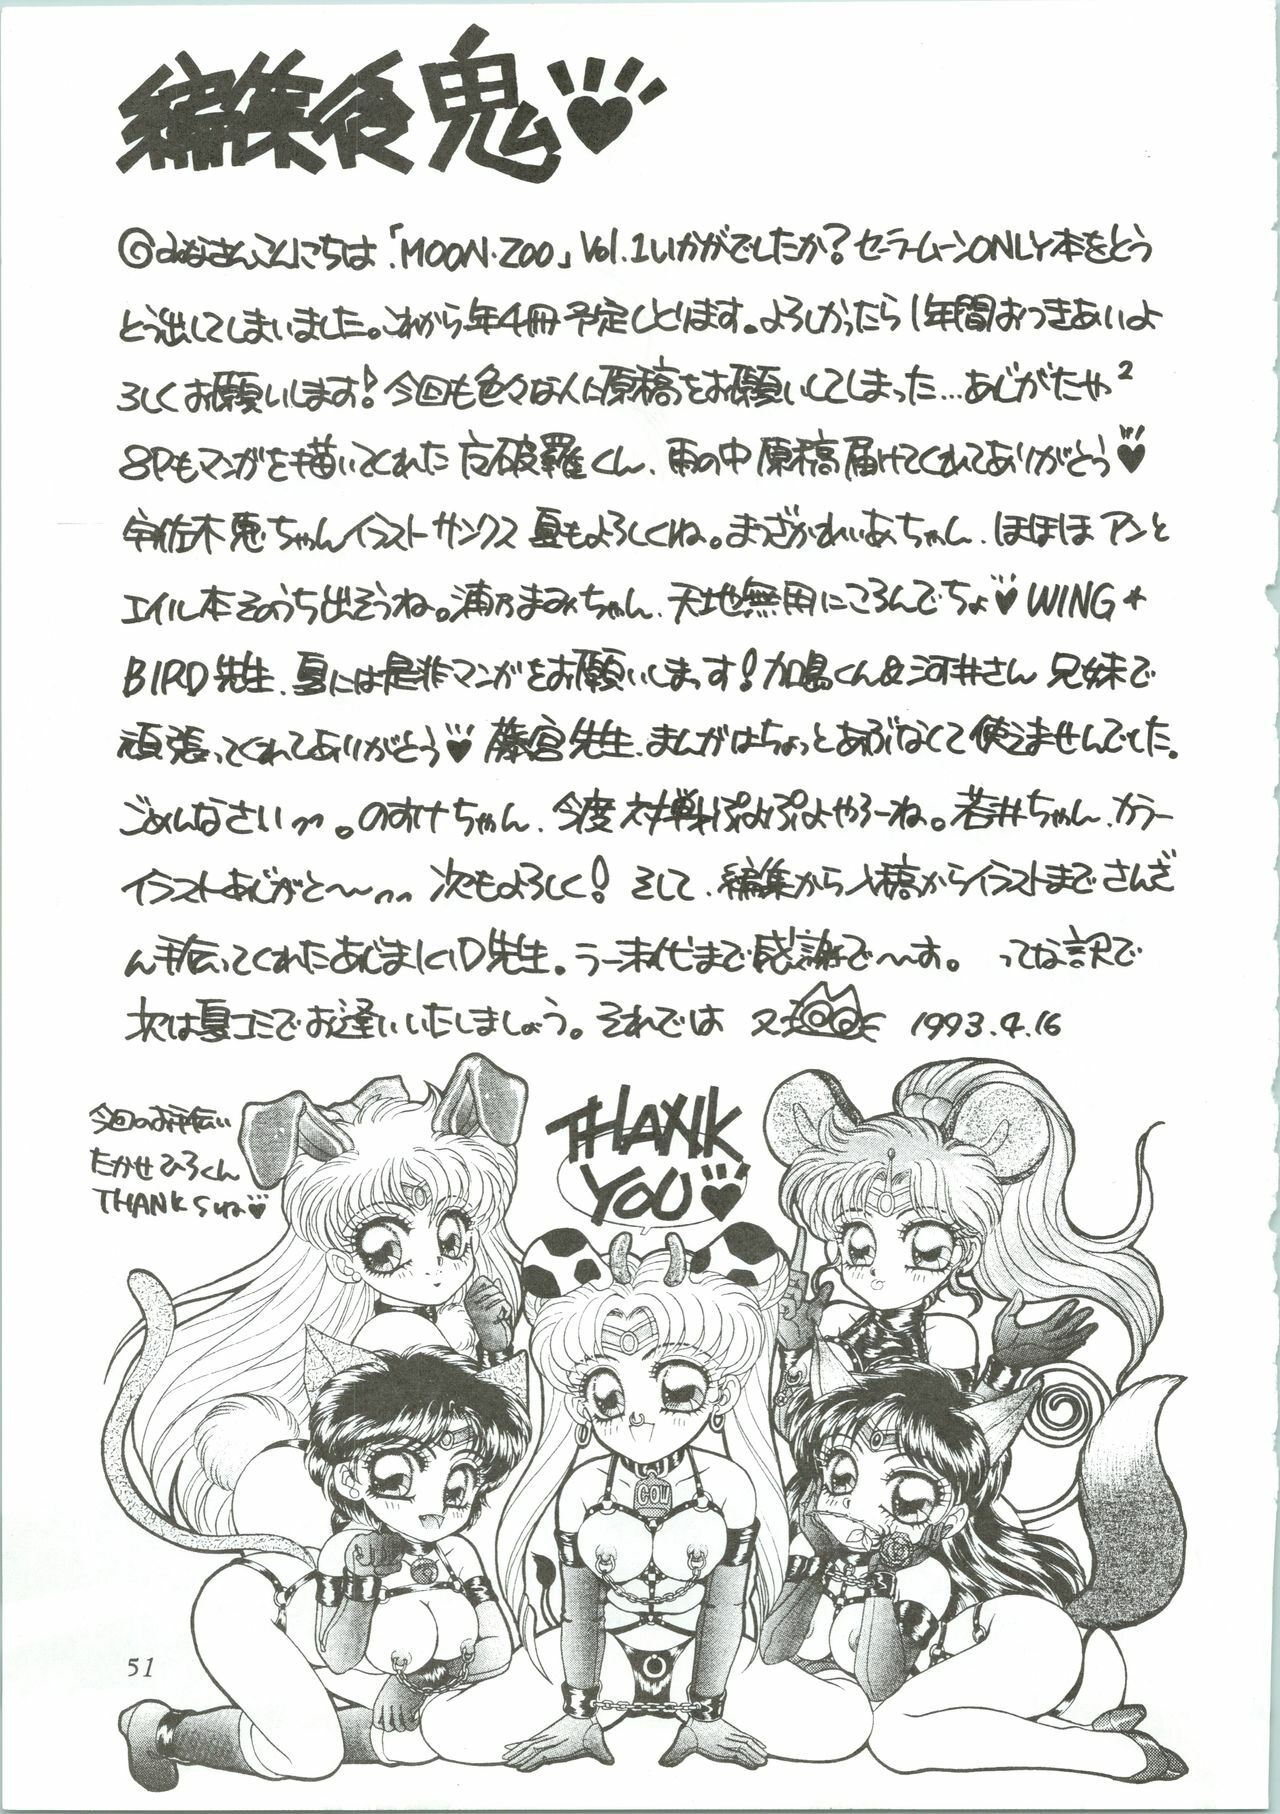 編集後鬼♥
◎みなさんこんにちは「MOON・ZOO」Vol.1いかがでしたか?セーラームーンONLY本をとう
とう出してしまいました。これから年4冊予定しとります。よろしかったら1年間おつきあいよ
ろしくお願いします!今回も色々な人に原稿をお願いしてしまった…あじがたや²
8Pもマンガを描いてくれた 破羅くん、雨の中原稿届けてくれてありがとう♥
宇佐木恵ちゃんイラストサンクス 夏もよろしくね。まつざかれいあちゃん、ほほほ アンと
エイル本そのうち出そうね。浦乃まみちゃん、天地無用にころんでちょ♥WING★
BIRD先生、夏には是非マンガをお願いしまっす!加島くん&河井さん 兄妹で
頑張ってくれてありがとう♥ 藤宮先生、まんがはちょっとあぶなくて使えませんでした。
ごめんなさい〜。のすけちゃん、今度対戦ぷよぷよやろーね。若井ちゃん、カラー
イラストあじがと〜〜 次もよろしく! そして、編集から入稿からイラストまでさんざ
ん手伝ってくれたあじまにID先生。うー末代まで感謝で〜〜す。 ってな訳で
次は夏コミでお逢いいたしましょう。それでは 1993.4.16
今回のお手伝い
たかせひろくん
THANKSね♥
THANK
YOU♥
COW
51